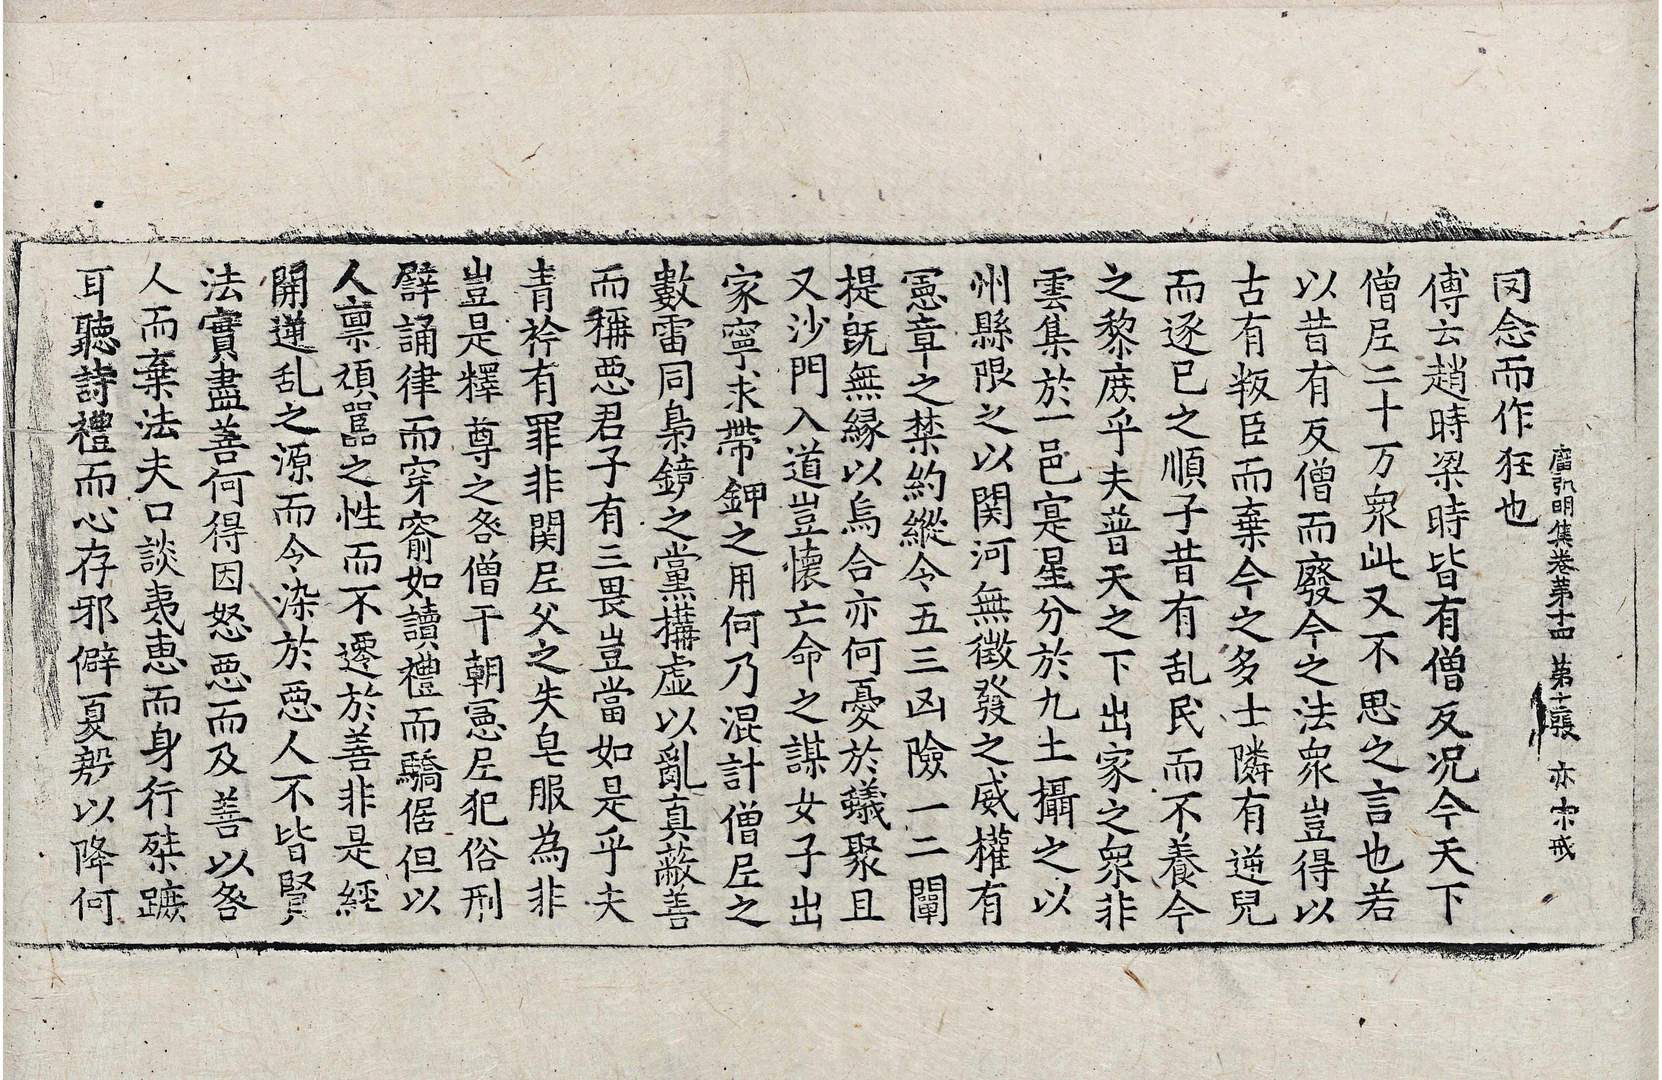 廣弘明集卷第十四 第十張 亦宗戒
罔念而作狂也
傅云趙時梁時皆有僧反况今天下
僧尼二十万衆此又不思之言也若
以昔有反僧而廢今之法衆豈得以
古有叛臣而棄今之多士隣有逆兒
而逐已之順子昔有乱民而不養今
之黎庶乎夫普天之下出家之衆非
雲集於一邑寔星分於九土攝之以
州縣限之以関河無徵發之威權有
憲章之禁約縱令五三凶險一二闡
提旣無縁以烏合亦何憂於蟻聚且
又沙門入道豈懷亡命之謀女子出
家寧求帶鉀之用何乃混計僧尼之
數雷同梟鏡之黨構虚以亂真蔽善
而稱惡君子有三畏豈當如是乎夫
青衿有罪非関尼父之失皂服為非
豈是釋尊之咎僧干朝憲尼犯俗刑
譬誦律而穿窬如讀禮而驕倨但以
人禀頑嚚之性而不遷於善非是經
開逆乱之源而令染於惡人不皆賢
法實盡善何得因怒惡而及善以咎
人而棄法夫口談夷惠而身行桀蹠
耳聽詩禮而心存邪僻夏殷以降何